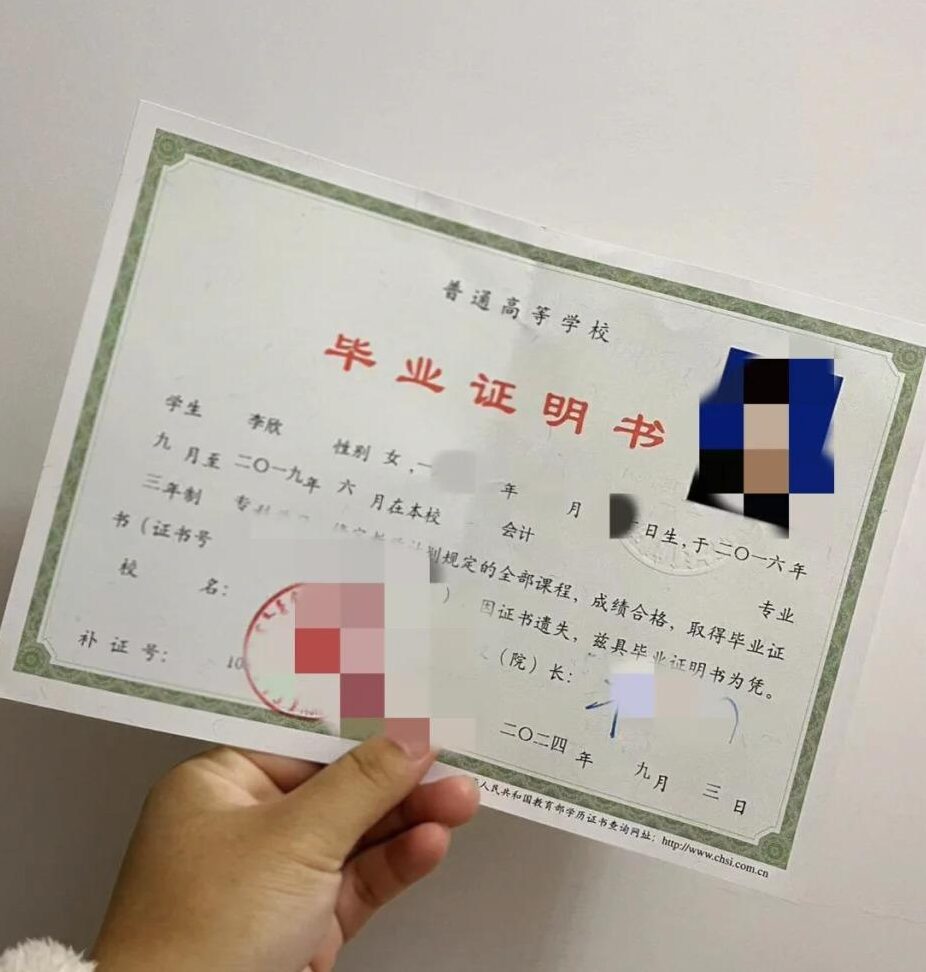 普通高等学校
毕业证明书
学生 李欣 性别 女,一 年 月 日生,于二〇一六年
九月至 二〇一九年 六月在本校 会计 专业
三年制 规定的全部课程,成绩合格,取得毕业证
书(证书号 ) 因证书遗失,兹具毕业证明书为凭。
校 名: (院)长:
补证号: 10 二〇二四年 九月 三日
人民共和国教育部学历证书查询网址: http://www.chsi.com.cn